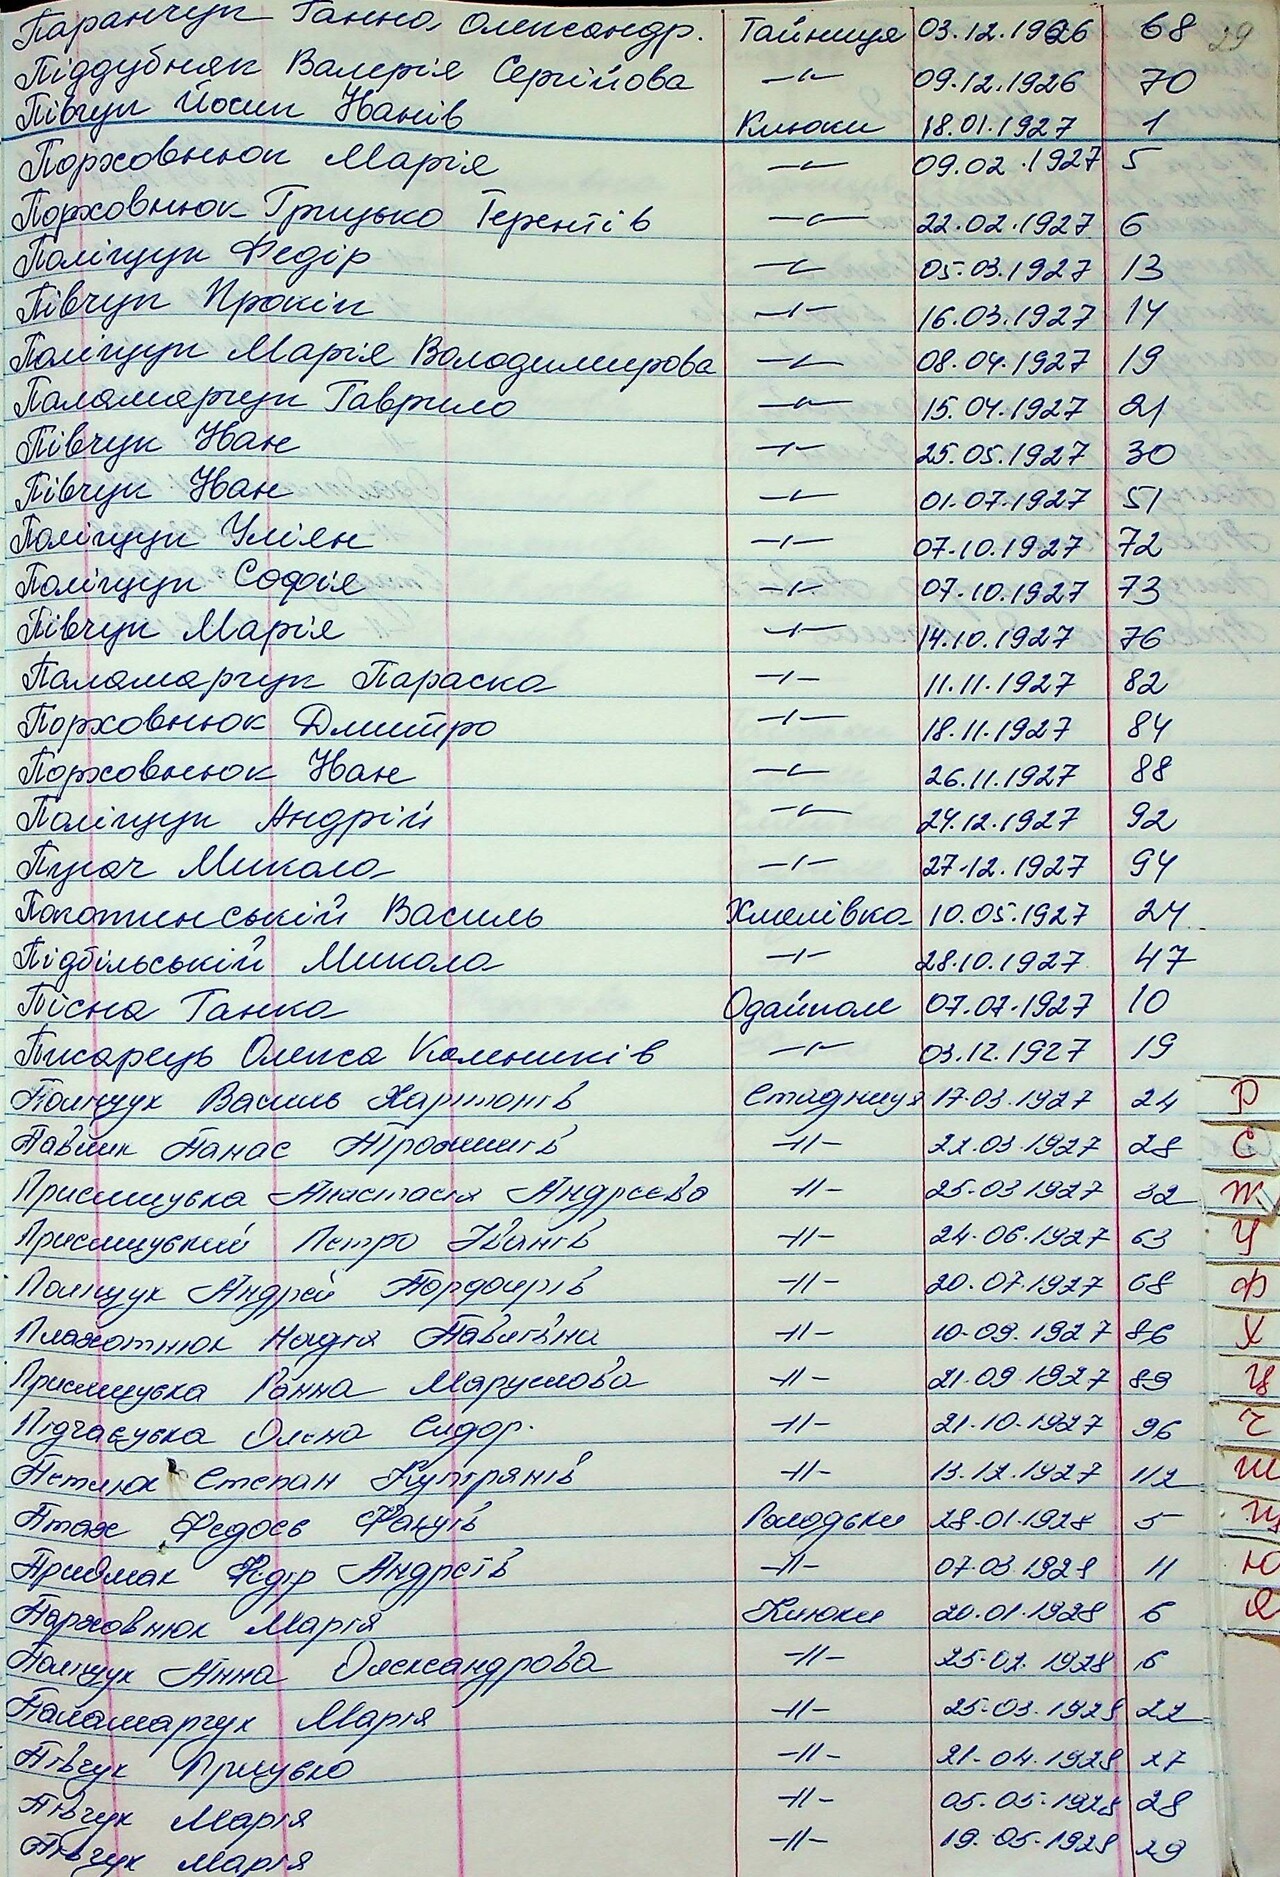 29
Паранчук Ганна Олександр. Тайниця 03.12.1926 68
Піддубняк Валерія Сергійова -"- 09.12.1926 70
Півчук Йосип Іванів Клюки 18.01.1927 1
Порховнюк Марія -"- 09.02.1927 5
Порховнюк Грицько Терентів -"- 22.02.1927 6
Поліщук Федір -"- 05.03.1927 13
Півчук Прокіп -"- 16.03.1927 14
Поліщук Марія Володимирова -"- 08.04.1927 19
Паламарчук Гаврило -"- 15.04.1927 21
Півчук Іван -"- 25.05.1927 30
Півчук Іван -"- 01.07.1927 51
Поліщук Уліян -"- 07.10.1927 72
Поліщук Софія -"- 07.10.1927 73
Півчук Марія -"- 14.10.1927 76
Паламарчук Параска -"- 11.11.1927 82
Порховнюк Дмитро -"- 18.11.1927 84
Порховнюк Іван -"- 26.11.1927 88
Поліщук Андрій -"- 24.12.1927 92
Пугач Микола -"- 27.12.1927 94
Василь Хмелівка 10.05.1927 24
Підбільській Микола -"- 28.10.1927 47
Пісна Ганка Одайпол 07.07.1927 10
Писарець Олекса Калеників -"- 03.12.1927 19
Поліщук Василь Харитонів Стадниця 17.03.1927 24
Панас -"- 22.03.1927 28
Анастасія Андрєєва -"- 25.03.1927 32
Петро Іванів -"- 24.06.1927 63
Поліщук Андрей -"- 20.07.1927 68
Плахотнюк Надія -"- 10.09.1927 86
Ганна -"- 21.09.1927 89
Підчасувка Олена Сидор. -"- 21.10.1927 96
Петлюк Степан Купріянів -"- 13.12.1927 112
Птах Федосє Володьки 28.01.1928 5
Приймак Федір Андреїв -"- 07.03.1928 11
Парховнюк Марія Клюки 20.01.1928 6
Поліщук Анна Олександрова -"- 25.02.1928 16
Паламарчук Марія -"- 25.03.1928 22
Півчук -"- 21.04.1928 27
Півчук Марія -"- 05.05.1928 28
Півчук Марія -"- 19.05.1928 29
Р
С
Т
У
Ф
Х
Ц
Ч
Ш
Щ
Ю
Я